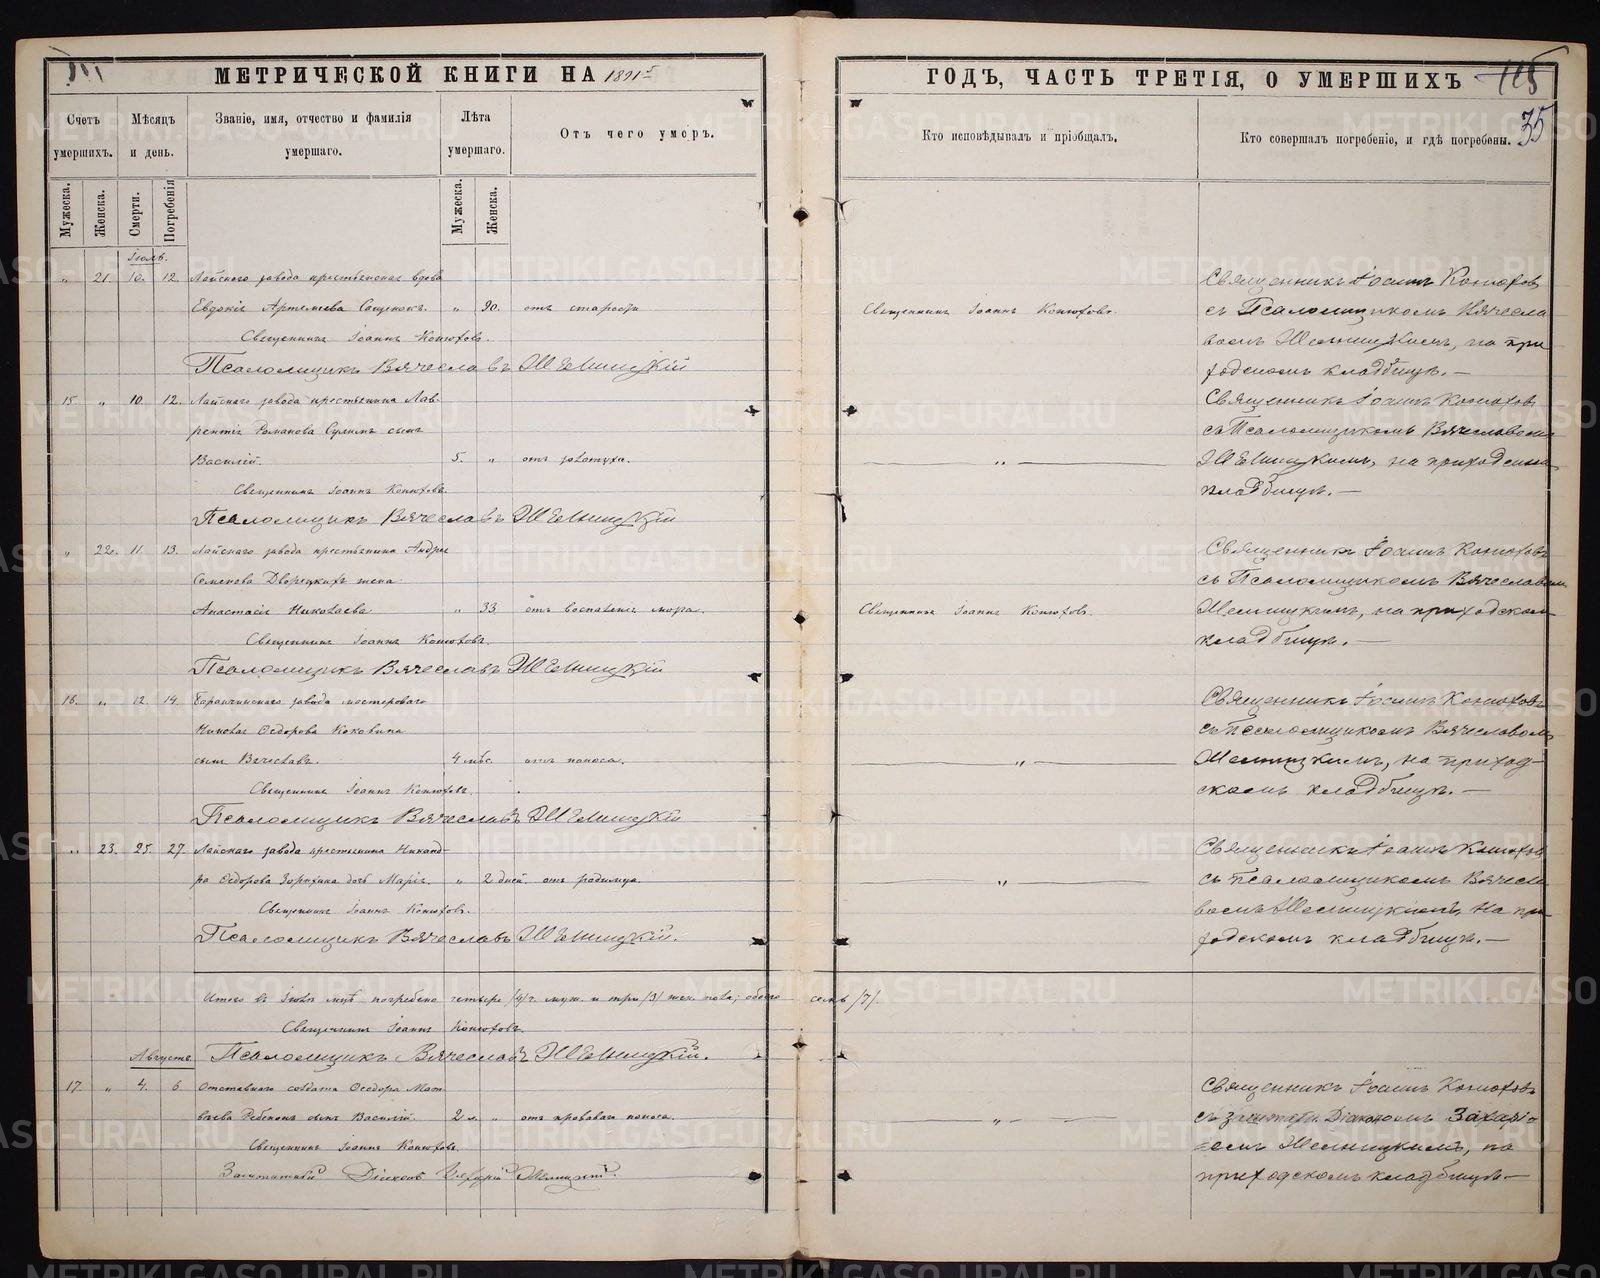 МЕТРИЧЕСКОЙ КНИГИ НА 1891 ГОДЪ, ЧАСТЬ ТРЕТІЯ, О УМЕРШИХЪ 115
35
Счетъ умершихъ.
Мѣсяцъ и день.
Званіе, имя, отчество и фамилія умершаго.
Лѣта умершаго.
Отъ чего умеръ.
Кто исповѣдывалъ и пріобщалъ.
Кто совершалъ погребеніе, и гдѣ погребены.
Мужеска. Женска. Смерти. Погребенія Мужеска. Женска.
Іюль.
„ 21. 10. 12. Лайскаго завода крестьянская вдова
Евдокія Артемьева „ 90. отъ старости
Священникъ Іоаннъ Конюховъ.
Псаломщикъ Вячеславъ
Священникъ Іоаннъ Конюховъ.
Священникъ Іоаннъ Конюховъ
съ Псаломщикомъ Вячесла
вомъ на при
ходскомъ кладбищѣ. —
15. „ 10. 12. Лайскаго завода крестьянина Лав-
рентія Романова сынъ
Василій. 5. „ отъ золотухи.
Священникъ Іоаннъ Конюховъ.
Псаломщикъ Вячеславъ
„
Священникъ Іоаннъ Конюховъ
съ Псаломщикомъ Вячеславомъ
на приходскомъ
кладбищѣ. —
„ 22. 11. 13. Лайскаго завода крестьянина Андрея
Семенова Дворецкихъ жена
Анастасія Николаева „ 33 отъ воспаленія
Священникъ Іоаннъ Конюховъ.
Псаломщикъ Вячеславъ
Священникъ Іоаннъ Конюховъ.
Священникъ Іоаннъ Конюховъ
съ Псаломщикомъ Вячеславомъ
на приходскомъ
кладбищѣ. —
16. „ 12. 14. Баранчинскаго завода мастероваго
Николая Ѳедорова Коковина
сынъ Вячеславъ. 4 мѣс. отъ поноса.
Священникъ Іоаннъ Конюховъ.
Псаломщикъ Вячеславъ
„
Священникъ Іоаннъ Конюховъ
съ Псаломщикомъ Вячеславомъ
на приход-
скомъ кладбищѣ. —
„ 23. 25. 27. Лайскаго завода крестьянина Никанд-
ра Ѳедорова дочь Марія. „ 2 дней. отъ родимца.
Священникъ Іоаннъ Конюховъ.
Псаломщикъ Вячеславъ
„
Священникъ Іоаннъ Конюховъ
съ псаломщикомъ Вячесла
вомъ на при
ходскомъ кладбищѣ. —
Итого въ Іюлѣ мцѣ погребено четыре /4/ муж. и три /3/ жен. пола; обоего семь /7/.
Священникъ Іоаннъ Конюховъ.
Августъ. Псаломщикъ Вячеславъ
17. „ 4. 6. Отставнаго солдата Ѳеодора Мат-
ваева сынъ Василій. 2 л. „ отъ кроваваго поноса.
Священникъ Іоаннъ Конюховъ.
Заштатный Діаконъ Захарій
„
Священникъ Іоаннъ Конюховъ
съ заштатн. Діакономъ Захарі-
емъ на
приходскомъ кладбищѣ —
METRIKI.GASO-URAL.RU